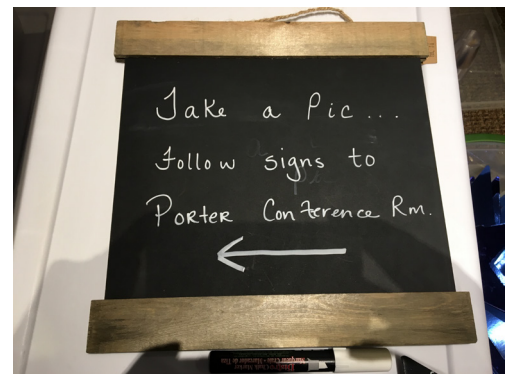 Take a Pic...
Follow signs to
Porter Conference Rm.